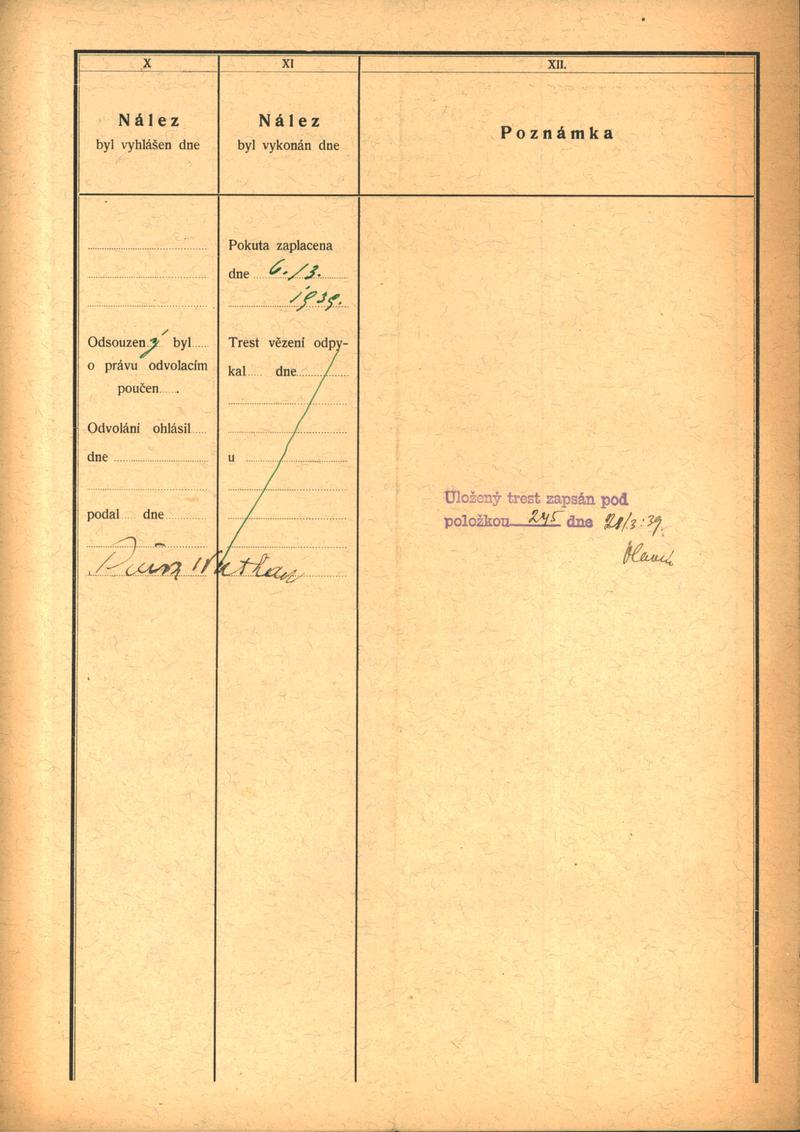 X
Nález
byl vyhlášen dne
Odsouzený byl
o právu odvolacím
poučen .
Odvolání ohlásil
dne
podal dne
XI
Nález
byl vykonán dne
Pokuta zaplacena
dne 6./3.
1939.
Trest vězení odpy-
kal dne
u
Nathan
XII.
Poznámka
Uložený trest zapsán pod
položkou 245 dne 21/3.39.